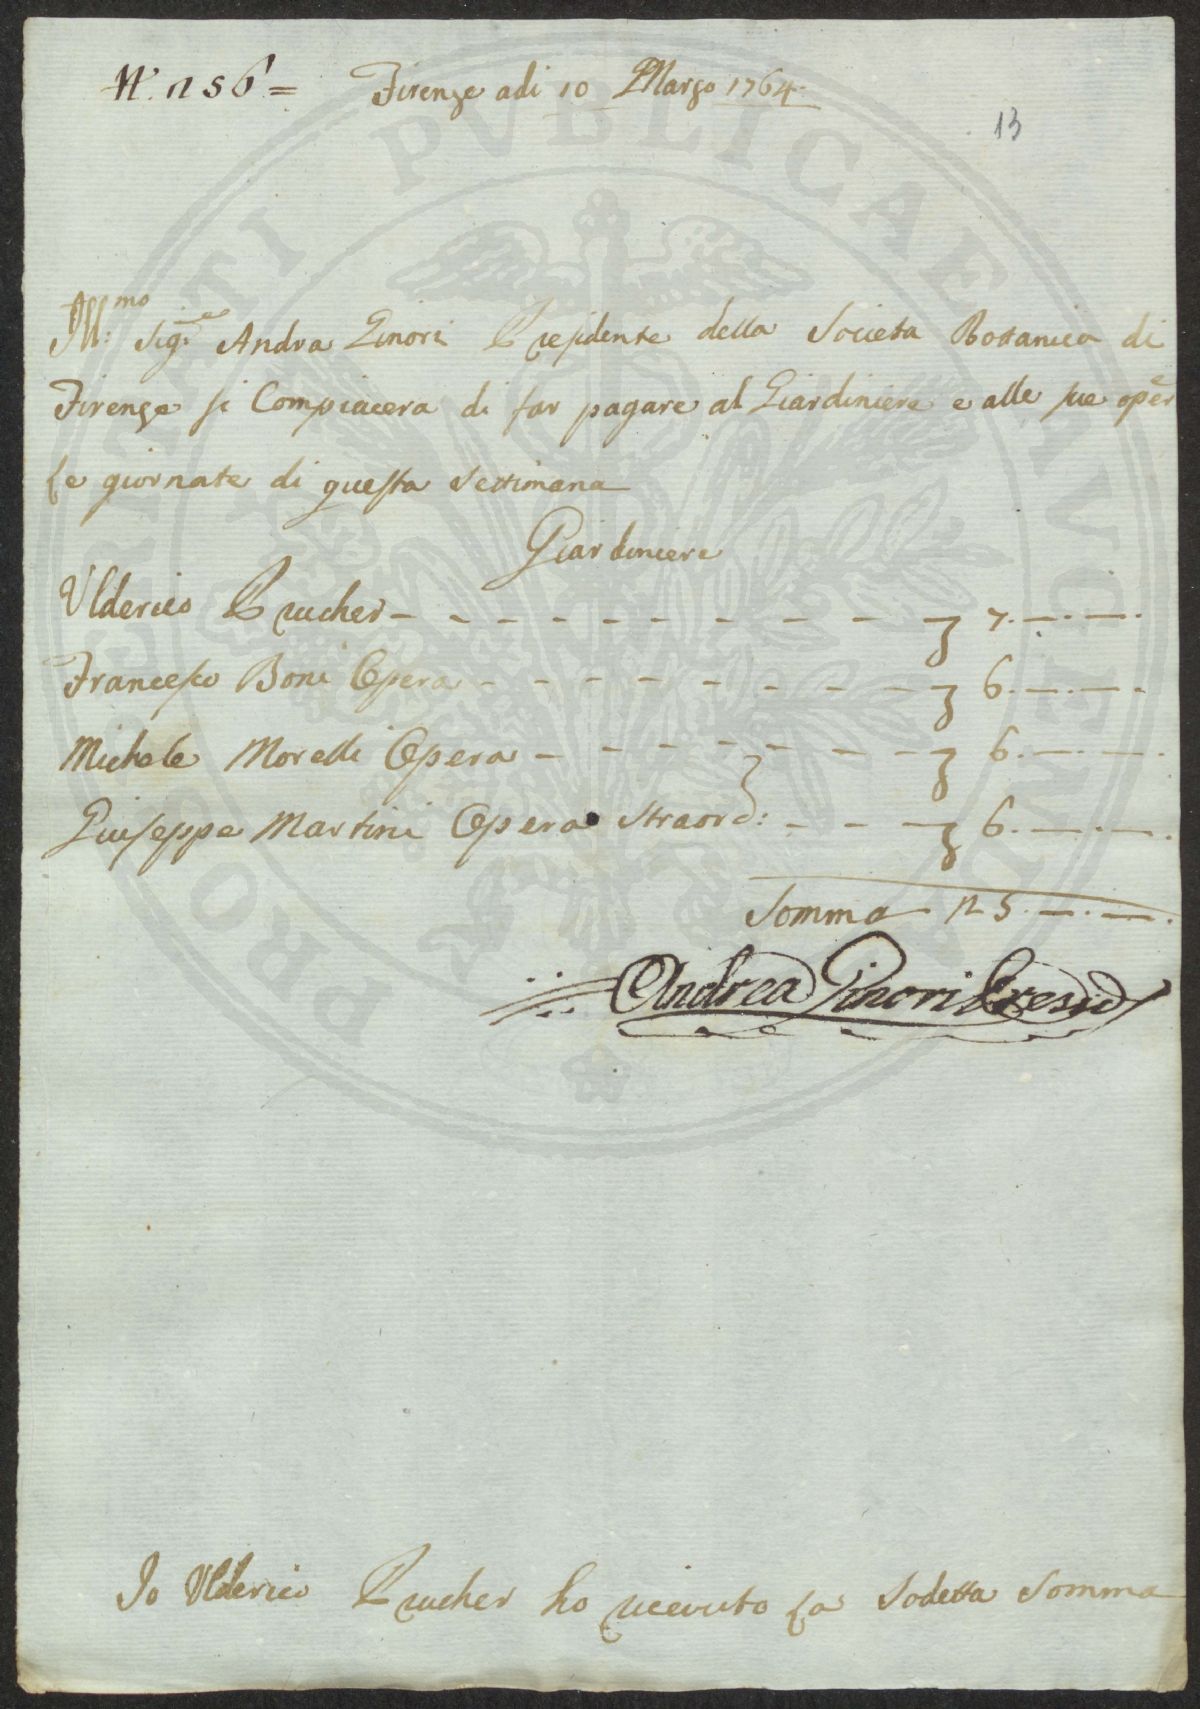 N. 256 = Firenze adi 10 Marzo 1764
13
Ill:mo Sig:re Andra Ginori Presidente della Societa Botanica di
Firenze si Compiacera di far pagare al Giardiniere e alle sue oper
le giornate di questa settimana
Giardiniere
Ulderico Prucher - - - - - - - - - - 7. — . — .
Francesco Boni Opera - - - - - - - - - 6. — . — .
Michele Morelli Opera - - - - - - - - 6. — . — .
Giuseppe Martini Opera Straord: - - - - 6. — . — .
Somma - 25. — . — .
Andrea Ginori Presid
Io Ulderico Prucher ho riceuto la Sodetta Somma
PROSPERITATI PVBLICAE AVGENDAE